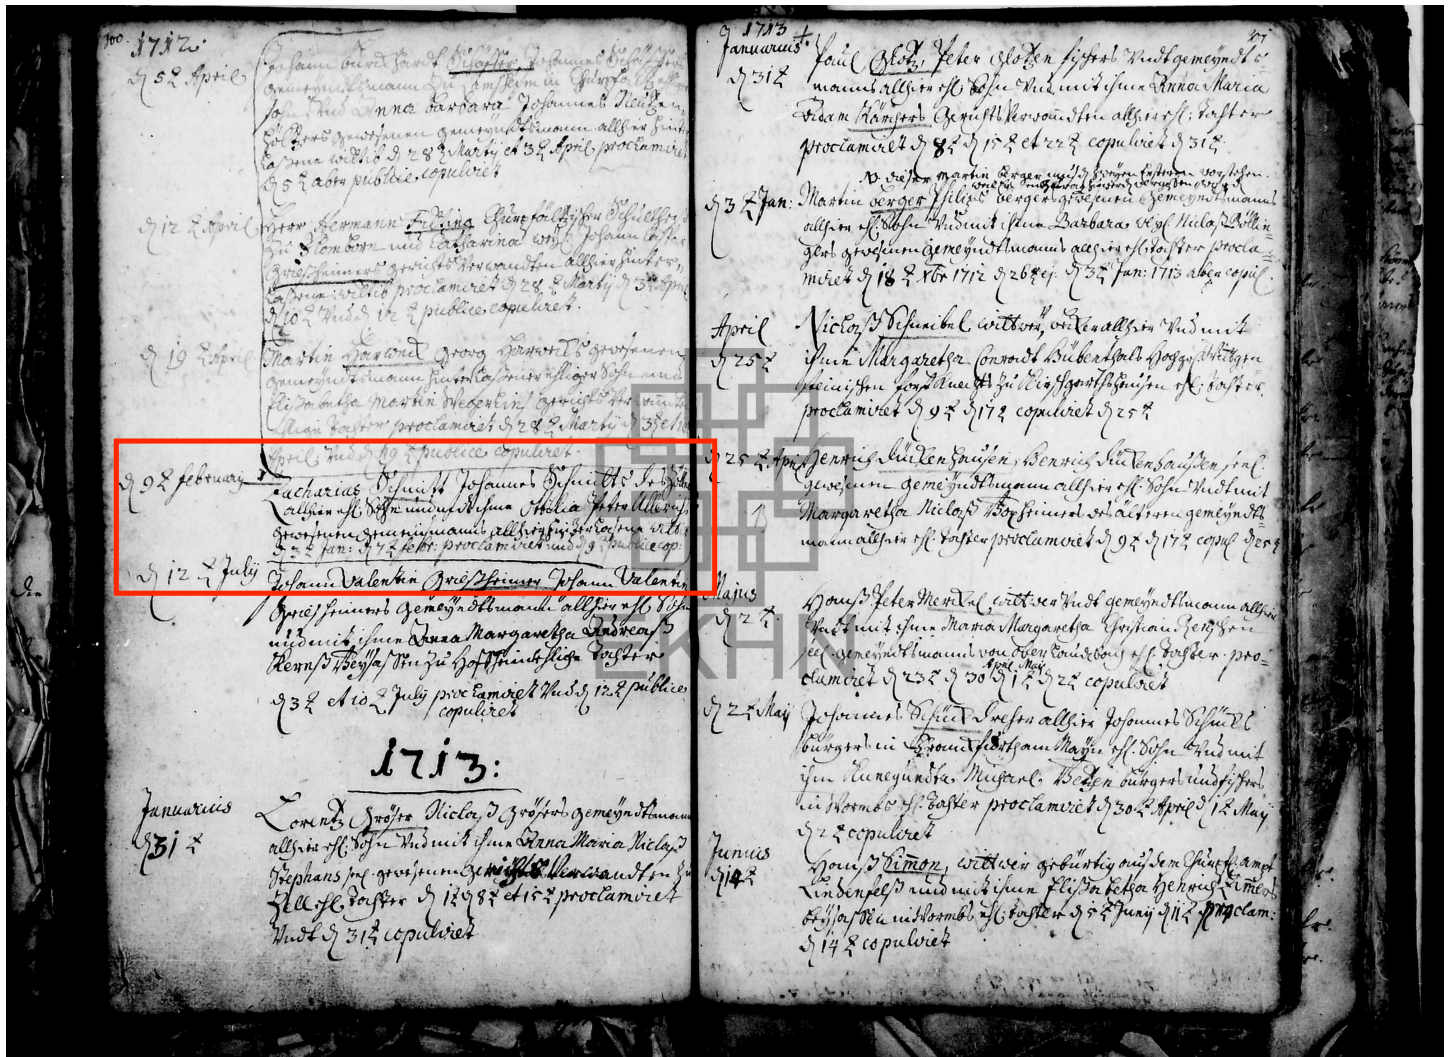 300.
1712.
d 5t April
Johann Burckhardt Schäffer, Johannes Schäffers
gemeyndtsmann zu Lamsheim in Churpfaltz ehl.
Sohn Vnd Anna Barbara Johannes
gewesenen gemeyndtsmann allhier hinter
laßene wittib d 28t Martij et 3t April proclamiret
d 5t aber publice copuliret
d 12t April
Herr Hermann Churpfältzischer Schultheiß
zu Flomborn und Catharina weyl. Johann
Grießheimers gerichts Verwandten allhier hinter-
laßene wittib proclamiret d 28t Martij d 3t April
d 10t Vnd d 12t publice copuliret.
d 19t April
Martin Hartweck Georg Hartwecks gewesenen
gemeyndtsmann hinterlaßener ehliger Sohn und
Elisabetha Martin gerichts Verwandten
ehlige Tochter proclamiret d 28t Martij d 3t et 10
April Vnd d 19t publice copuliret.
d 9t february
Zacharias Schmitt Johannes Schmitts des
allhier ehl. Sohn und mit ihme Ottilia Peter Ullrichs
gewesenen gemeinsmanns allhier hinterlaßene wittib
d 3t Jan: d 7t febr: proclamiret und d 9t publice cop:
d 12t July
Johann Valentin Grießheimer Johann Valentin
Grießheimers gemeyndtsmann allhier ehl. Sohn
und mit ihme Anna Margaretha Andreaß
Kernß Beysassen zu Hoffheim ehliche Tochter
d 3t et 10t July proclamiret Vnd d 12t publice
copuliret
1713:
Januarius
d 31t
Lorentz Gröser Niclaß Grösers gemeyndtsmann
allhier ehl. Sohn Vnd mit ihme Anna Maria Niclaß
Stephans sel. gewesenen gerichts Verwandten zu
ehl. Tochter d 1t d 8t et 15t proclamiret
Vndt d 31t copuliret
1713
301
Januarius.
d 31t
Paul Glotz, Peter Glotzen fischers Vndt gemeyndts
manns allhier ehl. Sohn Vnd mit ihme Anna Maria
Adam Kärchers Gerichts Verwandten allhier ehl. Tochter
proclamiret d 8t d 15t et 22t copuliret d 31t.
d 3t Jan:
Martin Berger Philips Bergers gewesenen Gemeyndtsmanns
allhier ehl. Sohn Vnd mit ihme Barbara weyl. Niclaß Böllin-
gers gewesenen Gemeyndtsmanns allhier ehl. Tochter procla-
miret d 18t Xbr 1712 d 26t ej. d 3t Jan: 1713 aber copul.
April
d 25t
Nickolaß Schneibel wittwer, allhier Vnd mit
ihme Margaretha Conradt Bübenthals Hochgr. Wittgen
steinischen forst Knechts zu Kirschgarthshausen ehl. Tochter
proclamiret d 9t d 17t copuliret d 25t
d 25t April
Henrich Dückenhausen, Henrich Dückenhausen seel.
gewesenen gemeyndtsmann allhier ehl. Sohn Vndt mit
Margaretha Niclaß Boxheimers des älteren gemeyndts-
mann allhier ehl. Tochter proclamiret d 9t d 17t copul. d 25t
Majus
d 2t
Hannß Peter Merckel, wittwer Vndt gemeyndtsmann allhier
Vndt mit ihme Maria Margaretha Christian
seel. gemeyndtsmanns von Oberlaudenbach ehl. Tochter. pro-
clamiret d 23t d 30 April d 1t May d 2t copuliret
d 2t May
Johannes Schück dreher allhier Johannes Schücks
bürgers in Franckfurth am Mayn ehl. Sohn Vnd mit
ihm Kunegundta Michael Betzen bürgers und fischers
in Wormbs ehl. Tochter proclamiret d 30t April d 1t May
d 2t copuliret
Junius
d 14t
Hannß Simon, wittwer gebürtig aus dem Churpf. ampt
Lindenfelß und mit ihme Elisabetha Henrich Zimmers
beysassen in Wormbs ehl. Tochter d 5t Junij d 11t proclam:
d 14t copuliret
EKHN